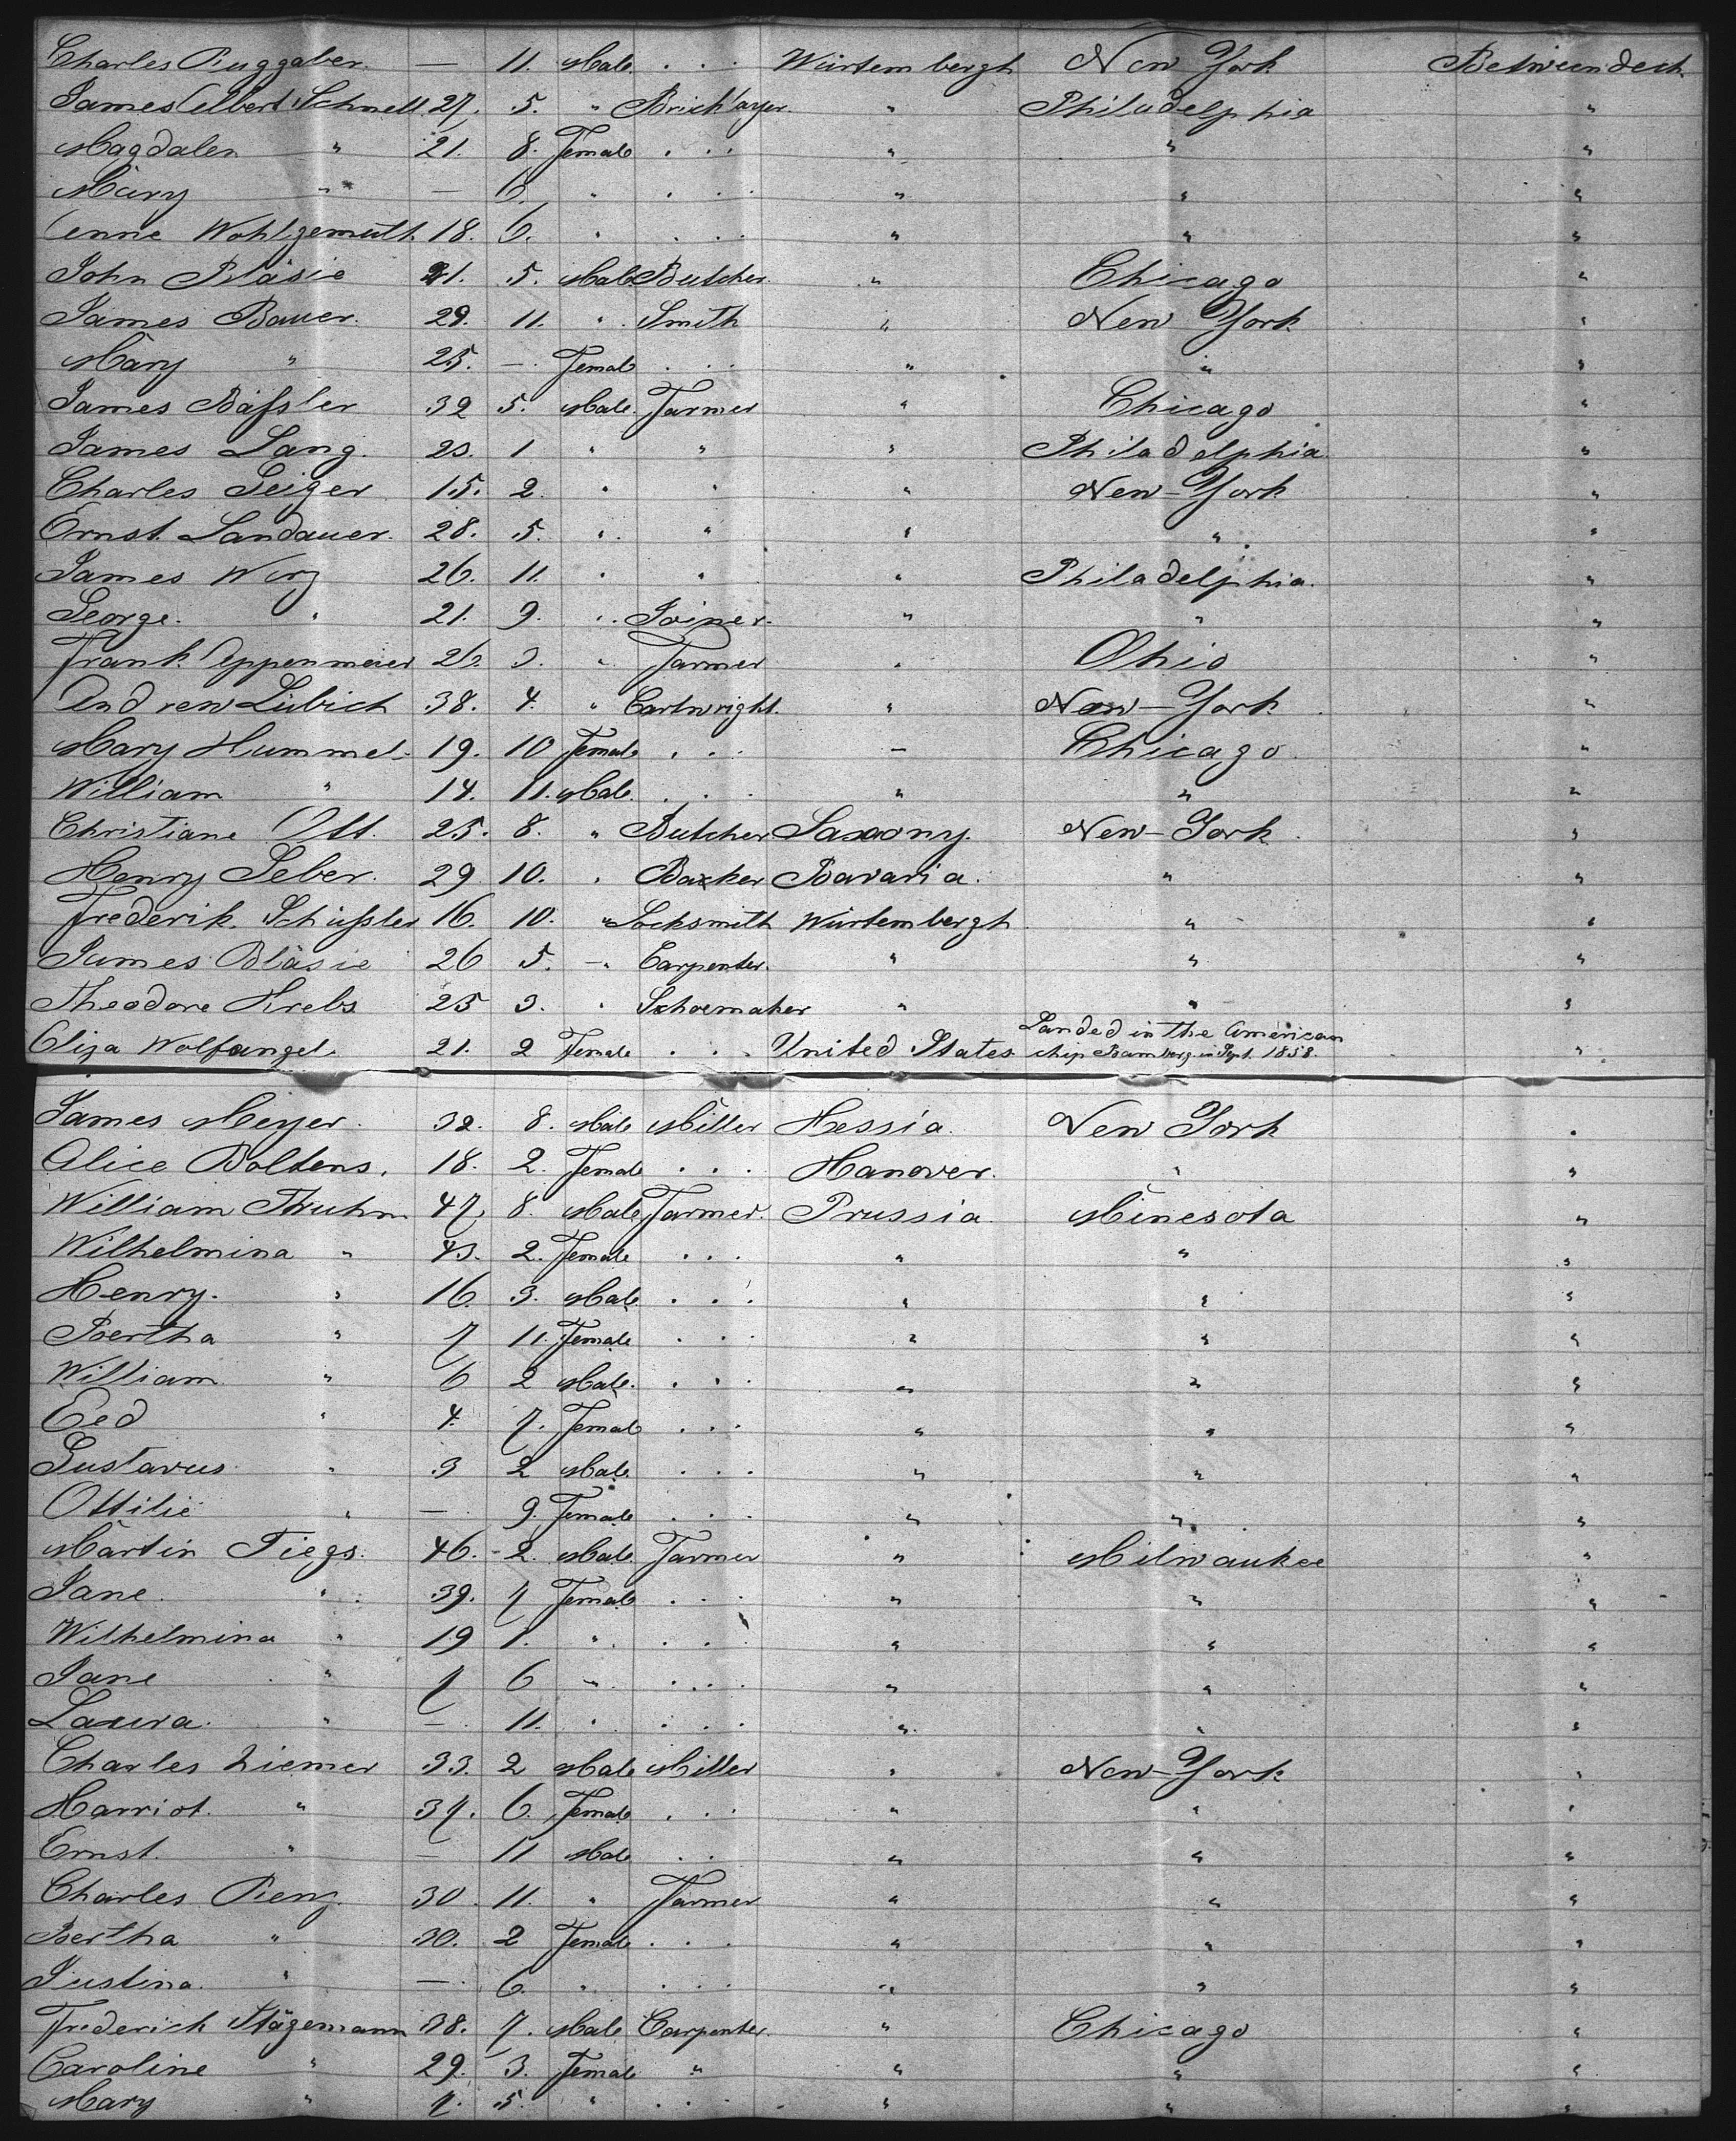 Charles Ruggaber. — 11. Male. . . . Würtembergh New York Betweendeck
James Albert Schnell 27. 5. " Bricklayer. " Philadelphia "
Magdalen " 21. 8. Female . . . " " "
Mary " — 6. " . . . " " "
Anne Wohlgemuth. 18. 6. " . . . " " "
John Bläsie 21. 5. Male Butcher. " Chicago "
James Bauer. 29. 11. " Smith " New York "
Mary " 25. — Female . . . " " "
James Bäßler 32 5. Male. Farmer " Chicago "
James Lang. 20. 1 " " " Philadelphia "
Charles Geiger 15. 2. " " " New-York "
Ernst Landauer. 28. 5. " " " " "
James Wörz 26. 11. " " " Philadelphia. "
George. " 21. 9. " Joiner. " " "
Frank Eppenmeier 26. 3. " Farmer " Ohio "
Andrew Lübich 38. 4. " Cartwright. " New-York "
Mary Hummel. 19. 10 Female . . . — Chicago. "
William " 14. 11. Male. . . . " " "
Christiane Ott. 25. 8. " Butcher Saxony. New-York "
Henry Seber. 29 10. " Backer Bavaria. " "
Frederik. Schüßler 16. 10. " Locksmith Würtembergh " "
James Bläsie 26 5. " Carpenter. " " "
Theodore Krebs 25 3. " Schoemaker " " "
Eliza Wolfangel. 21. 2 Female . . . United States Landed in the American
ship Bamberg in Sept. 1858. "
James Meyer. 32. 8. Male Miller Hessia. New York "
Alice Boltens. 18. 2. Female . . . Hanover. " "
William Thruhn 47. 8. Male Farmer. Prussia. Minesota "
Wilhelmina " 43. 2. Female . . . " " "
Henry. " 16. 3. Male . . . " " "
Bertha " 7 11. Female . . . " " "
William " 6 2 Male. . . . " " "
Eed " 4. 7. Female . . . " " "
Gustavus " 3 2 Male. . . . " " "
Ottilie " — 9. Female . . . " " "
Martin Tiegs. 46. 2. Male. Farmer " Milwaukee "
Jane. " 39. 7 Female . . . " " "
Wilhelmina " 19 1. " . . . " " "
Jane " 7 6 " . . . " " "
Laura. " — 11. " . . . " " "
Charles Ziemer 33. 2 Male Miller " New-York "
Harriot. " 37. 6. Female . . . " " "
Ernst. " — 11 Male . . " " "
Charles Renz. 30. 11. " Farmer " " "
Bertha " 30. 2 Female . . . " " "
Justina. " — 6. " . . . " " "
Frederick Stägemann 38. 7. Male Carpenter. " Chicago "
Caroline " 29. 3. Female " " " "
Mary " 7. 5. " . . . " " "